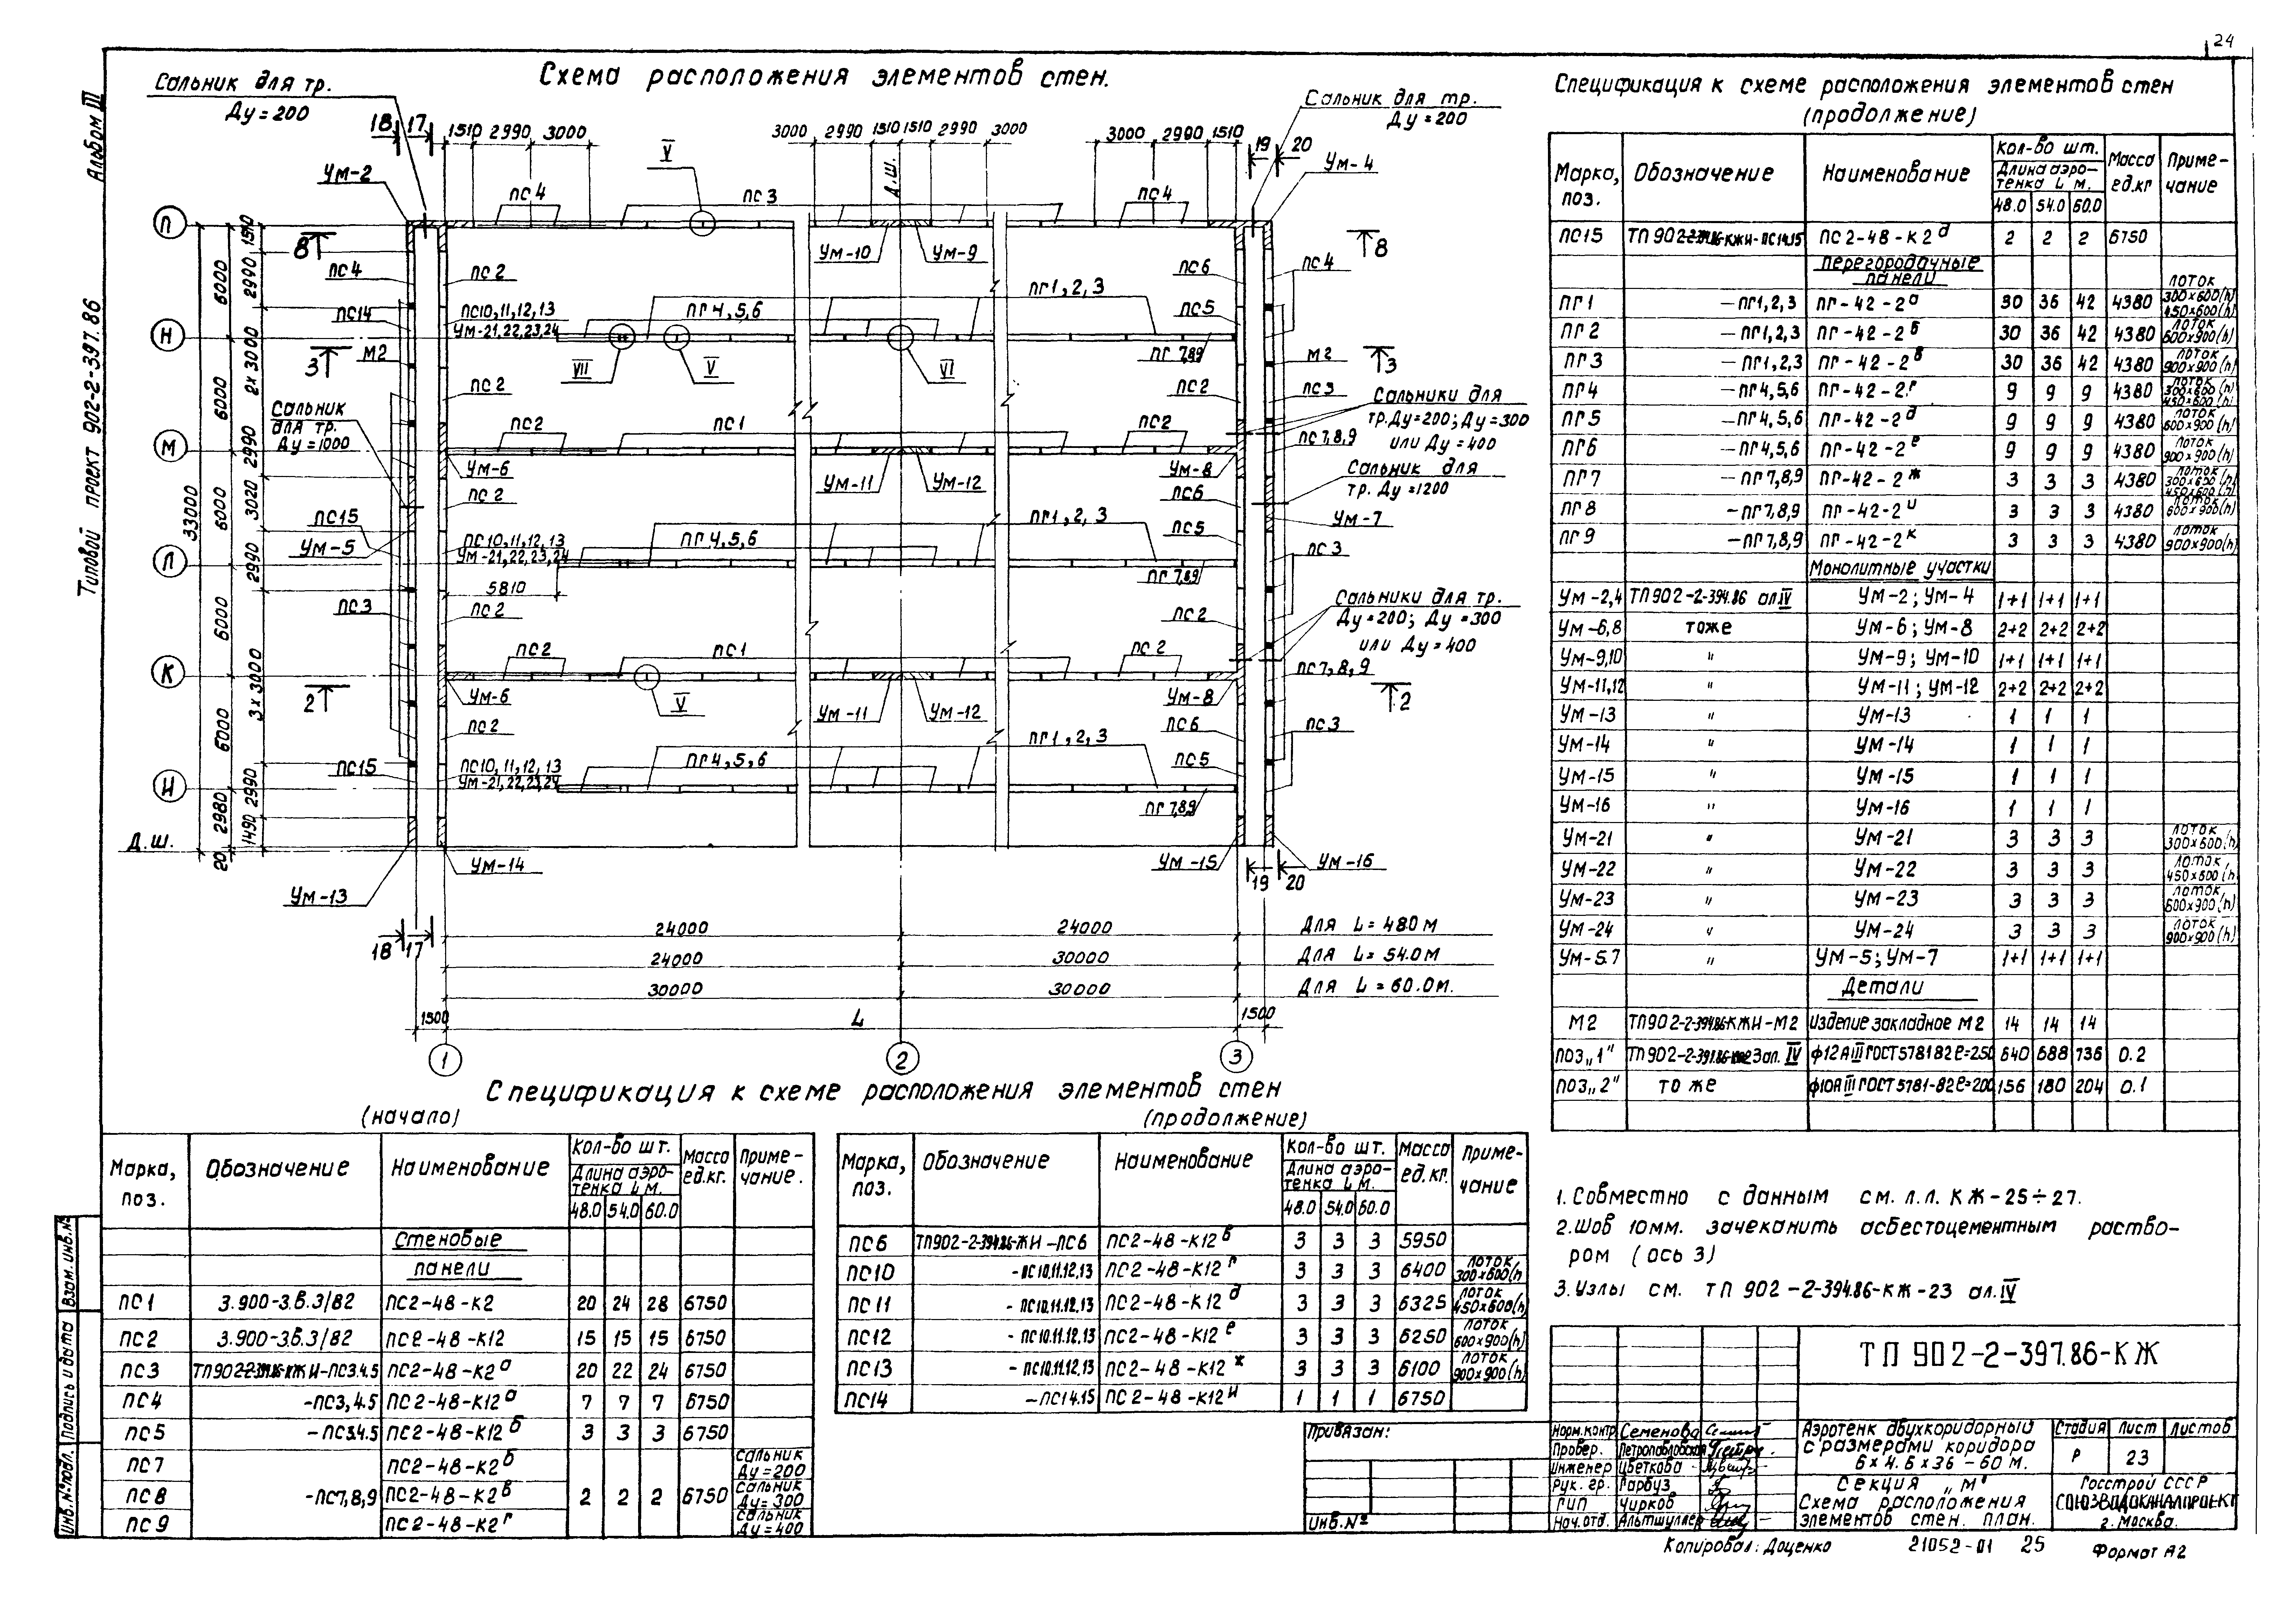 24
Альбом III
Типовой проект 902-2-397.86
Схема расположения элементов стен.
Сальник для тр.
Ду=200
18 17
1510 2990 3000
3000 2990 1510 1510 2990 3000
3000 2990 1510
Д.Ш.
Сальник для тр.
Ду=200
19 20
Ум-2
V
Ум-4
ПС4
ПС3
ПС4
П
8
Ум-10
Ум-9
8
ПС4
ПС2
ПС6
ПС4
ПС14
ПС10,11,12,13
Ум-21,22,23,24
ПГ4,5,6
ПГ1,2,3
ПС5
Н
3
М2
VII
V
VI
ПГ 7,8,9
М2
3
ПС2
ПС2
ПС3
Сальник
для тр.
Ду=1000
Сальники для
тр.Ду=200; Ду=300
или Ду=400
ПС2
ПС1
ПС2
ПС7,8,9
М
Ум-6
Ум-11
Ум-12
Ум-8
Сальник для
тр. Ду=1200
ПС2
ПС6
ПС15
Ум-5
ПС10,11,12,13
Ум-21,22,23,24
ПГ4,5,6
ПГ1,2,3
ПС5
Ум-7
Л
ПС3
5810
ПГ 7,8,9
ПС3
ПС2
ПС2
Сальники для тр.
Ду=200; Ду=300
или Ду=400
ПС2
ПС1
ПС2
ПС7,8,9
К
Ум-6
V
Ум-11
Ум-12
Ум-8
2
2
ПС2
ПС6
ПС3
ПС15
ПС10,11,12,13
Ум-21,22,23,24
ПГ4,5,6
ПГ1,2,3
ПС5
И
ПГ 7,8,9
Д.Ш.
33000
6000 6000 6000 6000 6000 2980 20
1510 2990 2х3000 2990 3020 2990 3х3000 2990 1490
Ум-13
Ум-14
Ум-15
Ум-16
19 20
18 17
24000 24000 Для L=48.0 м
24000 30000 Для L=54.0 м
30000 30000 Для L=60.0м.
1500 L 1500
1 2 3
Спецификация к схеме расположения элементов стен
(начало)
Марка, поз. Обозначение Наименование Кол-во шт. Масса ед.кг. Приме-чание.
Длина аэро-тенка L м.
48.0 54.0 60.0
Стеновые
панели
ПС1 3.900-3.в.3/82 ПС2-48-К2 20 24 28 6750
ПС2 3.900-3.в.3/82 ПС2-48-К12 15 15 15 6750
ПС3 ТП902-2-394.86-КЖИ-ПС3.4.5 ПС2-48-К2а 20 22 24 6750
ПС4 -ПС3,4.5 ПС2-48-К12а 7 7 7 6750
ПС5 -ПС3.4.5 ПС2-48-К12б 3 3 3 6750
ПС7 ПС2-48-К2б сальник Ду=200
ПС8 -ПС7,8,9 ПС2-48-К2в 2 2 2 6750 сальник Ду=300
ПС9 ПС2-48-К2г сальник Ду=400
(продолжение)
Марка, поз. Обозначение Наименование Кол-во шт. Масса ед.кг. Приме-чание
Длина аэро-тенка L м.
48.0 54.0 60.0
ПС6 ТП902-2-394.86-ЖИ-ПС6 ПС2-48-К12б 3 3 3 5950
ПС10 -ПС10.11.12,13 ПС2-48-К12г 3 3 3 6400 лоток 300х600(h
ПС11 -ПС10.11.12,13 ПС2-48-К12д 3 3 3 6325 лоток 450х600(h)
ПС12 -ПС10.11.12,13 ПС2-48-К12е 3 3 3 6250 лоток 600х900(h)
ПС13 -ПС10.11.12,13 ПС2-48-К12ж 3 3 3 6100 лоток 900х900(h)
ПС14 -ПС14.15 ПС2-48-К12и 1 1 1 6750
Спецификация к схеме расположения элементов стен
(продолжение)
Марка, поз. Обозначение Наименование Кол-во шт. Масса ед.кг Приме-чание
Длина аэро-тенка L м.
48.0 54.0 60.0
ПС15 ТП902-2-394.86-КЖИ-ПС14.15 ПС2-48-К2д 2 2 2 6750
Перегородочные
панели
ПГ1 -ПГ1,2,3 ПГ-42-2а 30 36 42 4380 лоток 300х600(h) 450х600(h)
ПГ2 -ПГ1,2,3 ПГ-42-2б 30 36 42 4380 лоток 600х900(h)
ПГ3 -ПГ1,2,3 ПГ-42-2в 30 36 42 4380 лоток 900х900(h)
ПГ4 -ПГ4,5,6 ПГ-42-2г 9 9 9 4380 лоток 300х600(h) 450х600(h)
ПГ5 -ПГ4,5,6 ПГ-42-2д 9 9 9 4380 лоток 600х900(h)
ПГ6 -ПГ4,5,6 ПГ-42-2е 9 9 9 4380 лоток 900х900(h)
ПГ7 -ПГ7,8,9 ПГ-42-2ж 3 3 3 4380 лоток 300х600(h) 450х600(h)
ПГ8 -ПГ7,8,9 ПГ-42-2и 3 3 3 4380 лоток 600х900(h)
ПГ9 -ПГ7,8,9 ПГ-42-2к 3 3 3 4380 лоток 900х900(h)
Монолитные участки
Ум-2,4 ТП902-2-394.86 ал.IV Ум-2; Ум-4 1+1 1+1 1+1
Ум-6,8 тоже Ум-6; Ум-8 2+2 2+2 2+2
Ум-9,10 " Ум-9; Ум-10 1+1 1+1 1+1
Ум-11,12 " Ум-11; Ум-12 2+2 2+2 2+2
Ум-13 " Ум-13 1 1 1
Ум-14 " Ум-14 1 1 1
Ум-15 " Ум-15 1 1 1
Ум-16 " Ум-16 1 1 1
Ум-21 " Ум-21 3 3 3 лоток 300х600(h)
Ум-22 " Ум-22 3 3 3 лоток 450х600(h
Ум-23 " Ум-23 3 3 3 лоток 600х900(h)
Ум-24 " Ум-24 3 3 3 лоток 900х900(h)
Ум-5.7 " Ум-5; Ум-7 1+1 1+1 1+1
Детали
М2 ТП902-2-394.86-КЖИ-М2 Изделие закладное М2 14 14 14
поз„1" ал. IV ф12АIII ГОСТ5781 82 ℓ=250 640 688 736 0.2
поз„2" то же ф10АIII ГОСТ5781-82 ℓ=200 156 180 204 0.1
1. Совместно с данным см. л.л. КЖ-25÷27.
2. Шов 10мм. зачеканить асбестоцементным раство-
ром (ось 3)
3. Узлы см. ТП 902-2-394.86-КЖ-23 ал.IV
ТП 902-2-397.86-КЖ
Привязан:
Инв.№
Норм.контр. Семенова
Провер. Петропавловская
Инженер Цветкова
Рук. гр. Гарбуз
ГИП Чирков
Нач.отд. Альтшуллер
Аэротенк двухкоридорный
с размерами коридора
6х4.6х36-60м.
Стадия Лист Листов
Р 23
Секция „М"
Схема расположения
элементов стен. план.
Госстрой СССР
СОЮЗВОДОКАНАЛПРОЕКТ
г. Москва.
Копировал: Доценко 21052-01 25 Формат А2
Взам. инв.№
Подпись и дата
Инв.№подл.